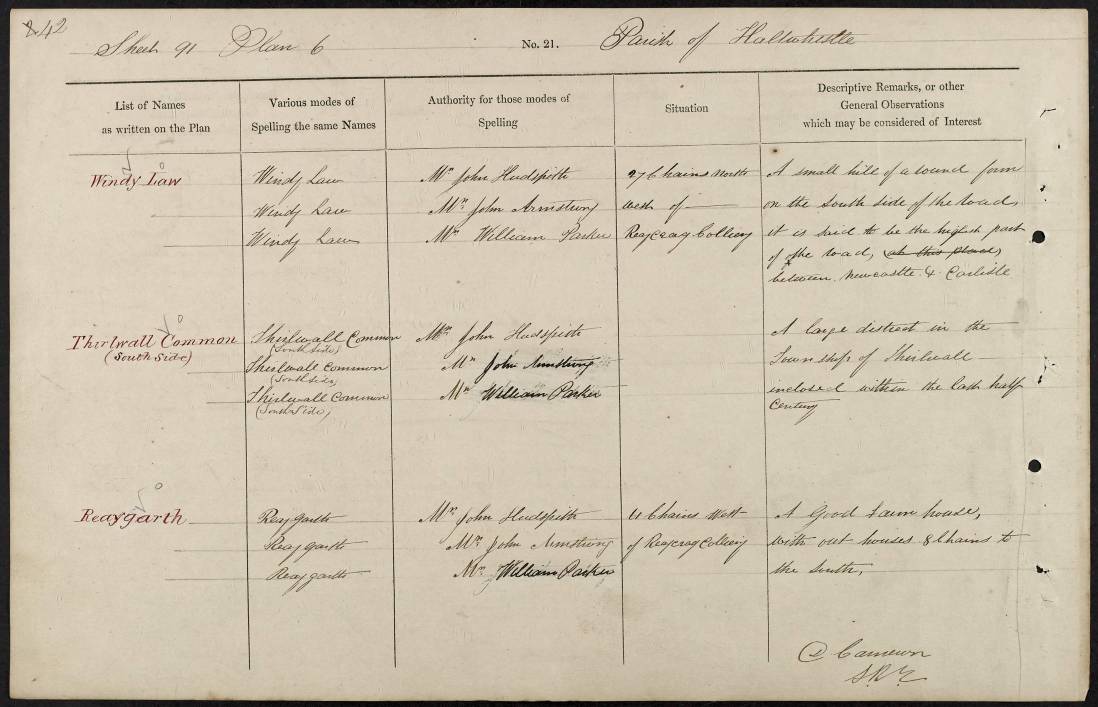 42
Sheet 91 Plan 6
No. 21.
Parish of Haltwhistle
List of Names
as written on the Plan
Various modes of
Spelling the same Names
Authority for those modes of
Spelling
Situation
Descriptive Remarks, or other
General Observations
which may be considered of Interest
Windy Law
Windy Law
Windy Law
Windy Law
Mr. John Hudspith
Mr. John Armstrong
Mr. William Parker
27 Chains North
West of
Reaycrag Colliery
A small hill of a round form
on the South side of the road,
it is said to be the highest part
of the road, at this place,
between Newcastle & Carlisle
Thirlwall Common
(South Side)
Thirlwall Common
(South Side)
Thirlwall Common
(South Side)
Thirlwall Common
(South Side)
Mr. John Hudspith
Mr. John Armstrong
Mr. William Parker
A large district in the
Township of Thirlwall
inclosed within the last half
Century
Reaygarth
Reaygarth
Reaygarth
Reaygarth
Mr. John Hudspith
Mr. John Armstrong
Mr. William Parker
4 Chains West
of Reaycrag Colliery
A Good Farm house,
with out houses 8 Chains to
the South,
Cameron